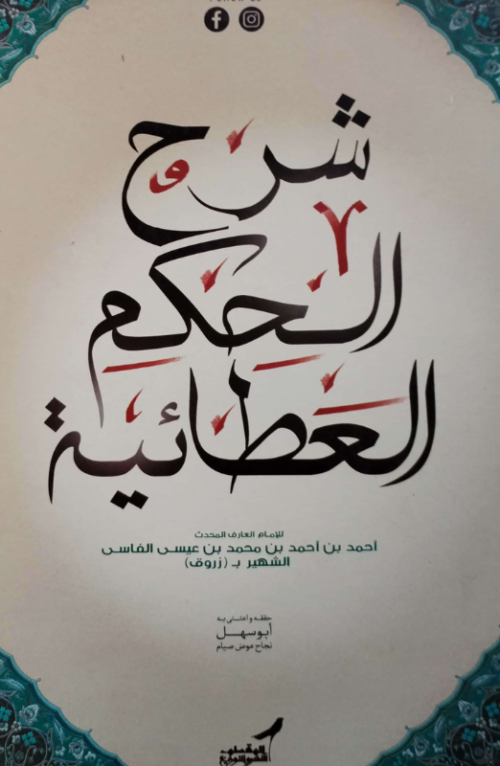 شرح
الحِكَمِ
العَطائية
للإمام العارف المحدث
أحمد بن أحمد بن محمد بن عيسى الفاسى
الشهير بـ (زروق)
حققه و اعتنى به
أبو سهل
نجاح عوض صيام